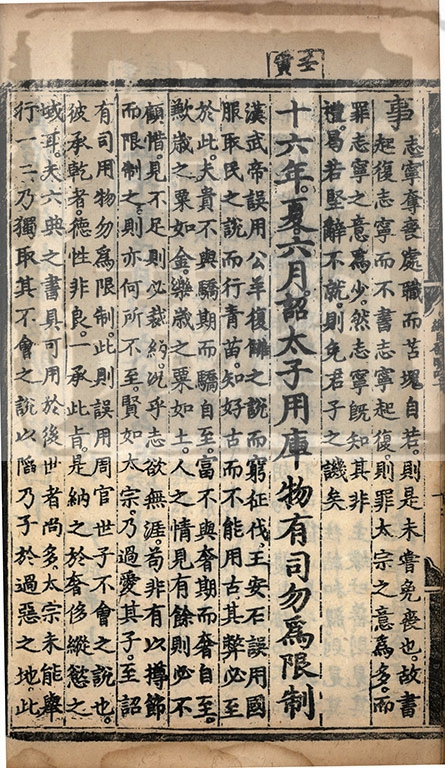 壬寅
事志寧奪喪處職而苫塊自若則是未嘗免喪也故書
起復志寧而不書志寧起復則罪太宗之意爲多而
罪志寧之意爲少然志寧既知其非
禮曷若堅辭不就則免君子之譏矣
十六年夏六月詔太子用庫物有司勿爲限制
漢武帝誤用公羊復讎之說而窮征伐王安石誤用國
服取民之說而行青苗知好古而不能用古其弊必至
於此夫貴不與驕期而驕自至富不與奢期而奢自至
歉歲之粟如金樂歲之粟如土人之情見有餘則必不
顧惜見不足則必裁約况乎志欲無涯苟非有以撙節
而限制之則亦何所不至賢如太宗乃過愛其子至詔
有司用物勿爲限制此則誤用周官世子不會之說也
彼承乾者德性非良一承此旨是納之於奢侈縱慾之
域耳夫六典之書具可用於後世者尚多太宗未能舉
行一二乃獨取其不會之說以陷乃子於過惡之地此